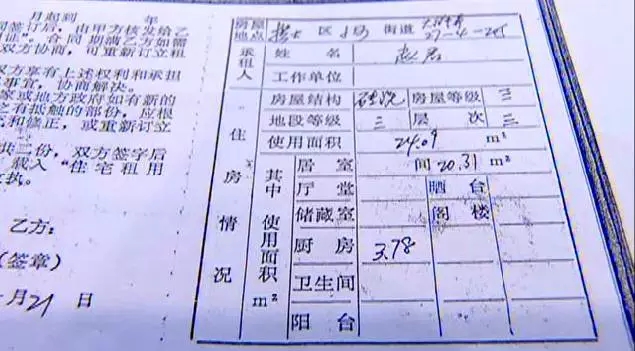 月起到 年
同签订后，由甲方核发给乙
证”，合同期满乙方如需
双方协商，可重新订立租
双方享有上述权利和承担
事宜，协商解决。
家或地方政府如有新的
之有抵触的部份，应根
和修正，或重新订立
共二份，双方签字后
载入“住宅租用
执。
乙方：
（签章）
月21日
房屋地点 区 街道 27-4-2
承租人 姓名
工作单位
住房情况
房屋结构 房屋等级 三
地段等级 三 层次 三
使用面积 24.09 m²
其中使用面积m²
居室 间20.31 m²
厅堂 晒台
储藏室 阁楼
厨房 3.78
卫生间
阳台